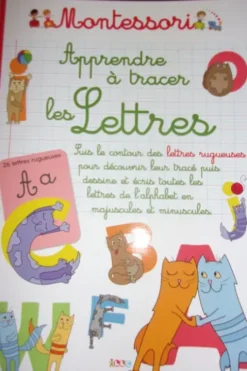 Montessori
Apprendre
à tracer
les Lettres
26 lettres rugueuses
A a
Suis le contour des lettres rugueuses
pour découvrir leur tracé puis
dessine et écris toutes les
lettres de l'alphabet en
majuscules et minuscules.
C B J
W F A